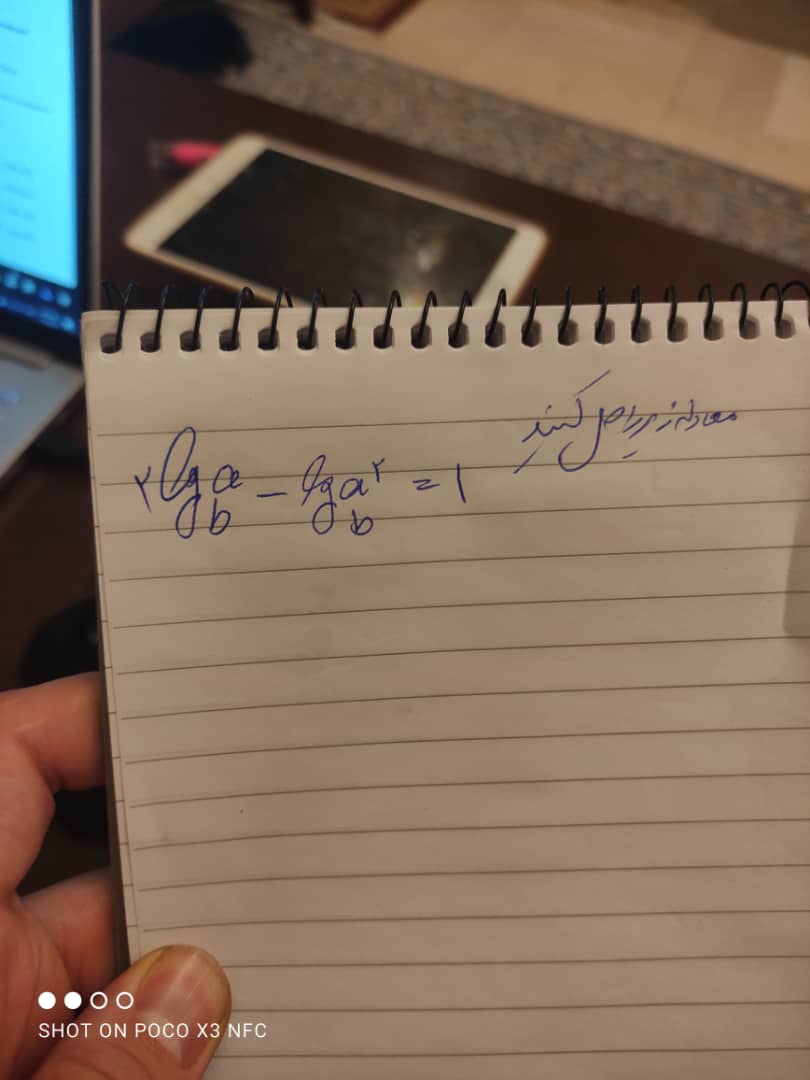 معادله زیر را حل کنید
۲ log a b − log a² b = ۱
SHOT ON POCO X3 NFC